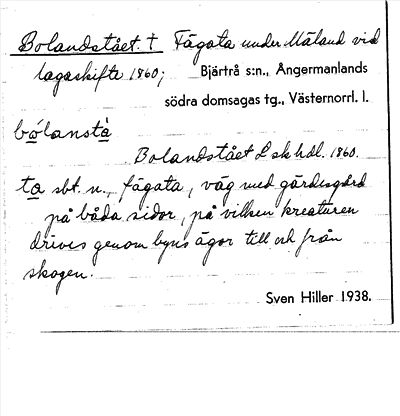 Bolandstået. † Fägata under Måland vid
lagaskifte 1860; Bjärtrå s:n., Ångermanlands
södra domsagas tg., Västernorrl. l.
bólanstà
Bolandstået L sk hdl. 1860.
ta sbt. n., fägata, väg med gärdesgård
på båda sidor, på vilken kreaturen
drives genom byns ägor till och från
skogen.
Sven Hiller 1938.